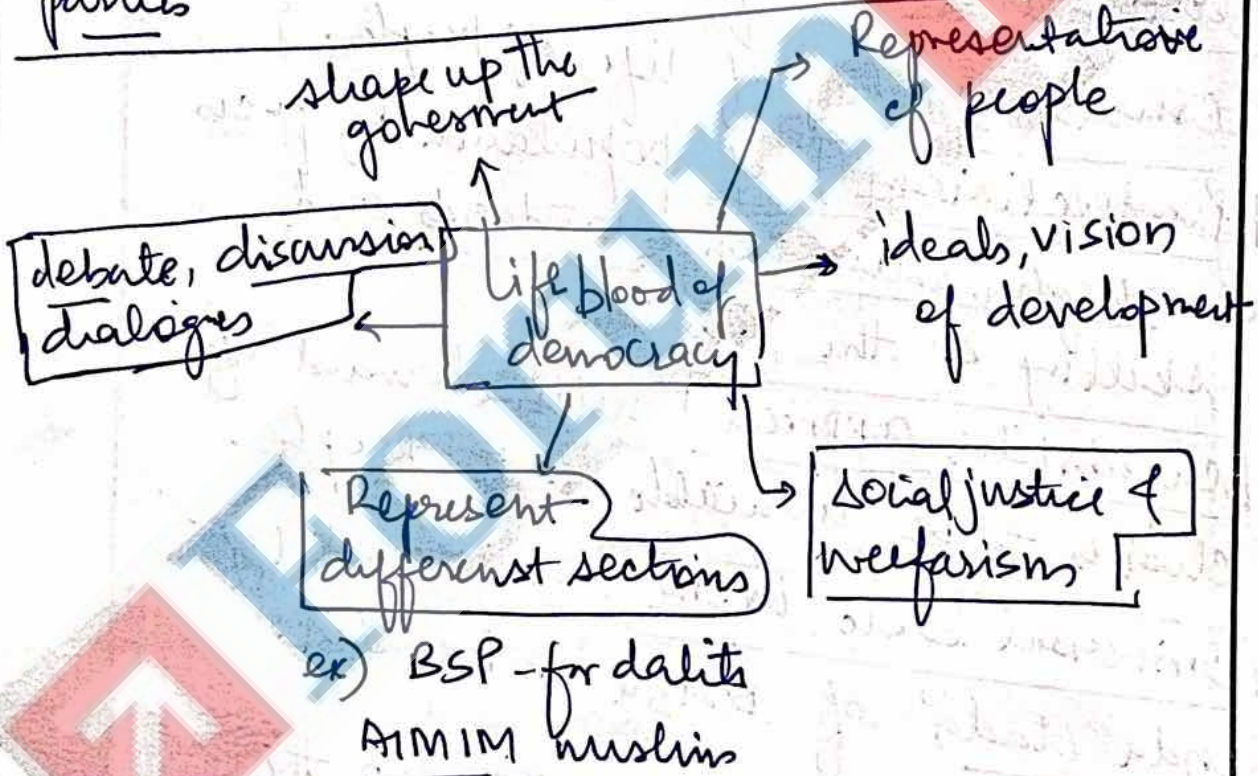 parties
shape up the
government
Representative
of people
debate, discussion
dialogues
Life blood of
democracy
ideals, vision
of development
Represent
different sections
social justice &
welfarism
ex) BSP - for dalits
AIMIM muslims
Forum